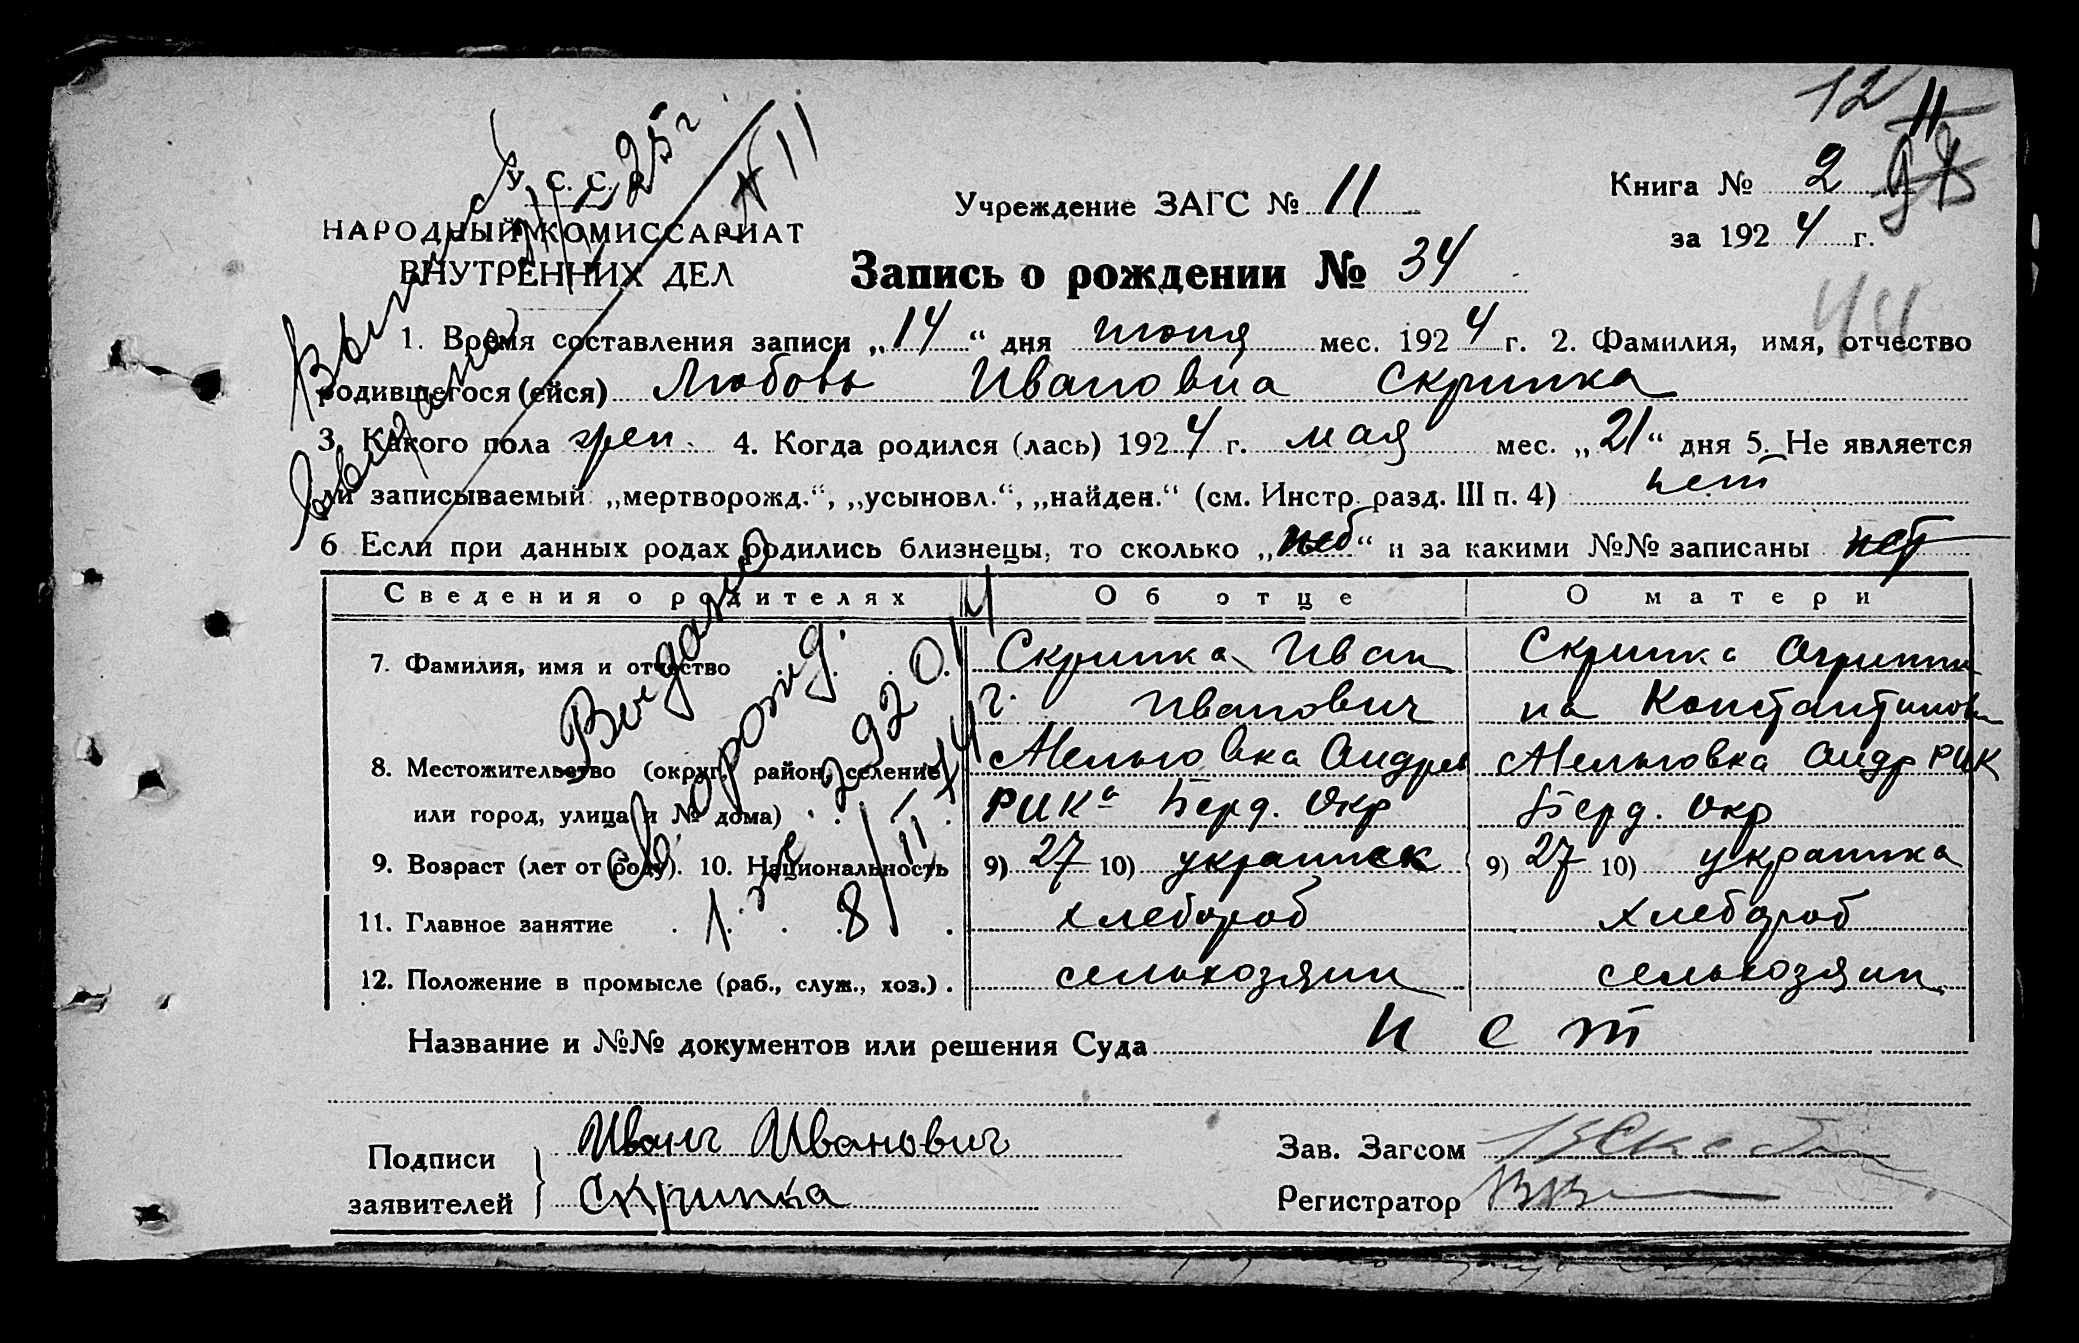 12
11
У. С. С. Р.
НАРОДНЫЙ КОМИССАРИАТ
ВНУТРЕННИХ ДЕЛ
№ 11
Учреждение ЗАГС № 11
Книга № 2
за 1924 г.
Запись о рождении № 34
44
1. Время составления записи „14“ дня июня мес. 1924 г. 2. Фамилия, имя, отчество
родившегося (ейся) Любовь Ивановна Скрипка
3. Какого пола жен. 4. Когда родился (лась) 1924 г. мая мес. „21“ дня 5. Не является
ли записываемый „мертворожд.“, „усыновл.“, „найден.“ (см. Инстр. разд. III п. 4) нет
6 Если при данных родах родились близнецы, то сколько „нет“ и за какими №№ записаны нет
Сведения о родителях Об отце О матери
7. Фамилия, имя и отчество Скрипка Иван Скрипка Агриппи
Иванович на Константинов
8. Местожительство (округ, район, селение Андреев Андр РИК
или город, улица и № дома) РИКа Берд. Окр Берд. Окр
9. Возраст (лет от роду). 10. Национальность 9) 27 10) украинск 9) 27 10) украинка
11. Главное занятие хлебороб хлебороб
12. Положение в промысле (раб., служ., хоз.) сельхозяин сельхозяин
Название и №№ документов или решения Суда нет
Подписи Иван Иванович Зав. Загсом
заявителей Скрипка Регистратор
Выписка
выдано
Выдано
св. о рожд.